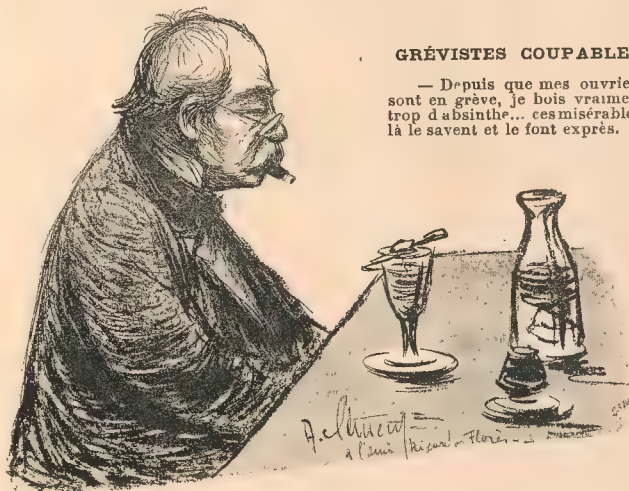 GRÉVISTES COUPABLE
— Depuis que mes ouvrie
sont en grève, je bois vraime
trop d absinthe... ces misérable
là le savent et le font exprès.
à l'ami Ricardo Florès